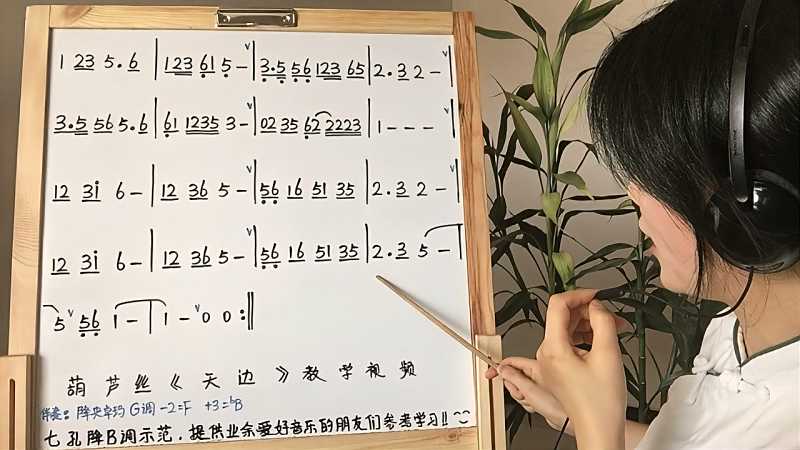 1 23 5.6 | 123 61 5 - ᵛ| 3.5 56 123 65 | 2.3 2 - ᵛ|
3.5 56 5.6 | 61 1235 3 - ᵛ| 02 35 62 2223 | 1 - - - ᵛ|
12 3i 6 - | 12 36 5 - ᵛ| 56 16 51 35 | 2.3 2 - ᵛ|
12 3i 6 - | 12 36 5 - ᵛ| 56 16 51 35 | 2.3 5 - |
5 ᵛ 56 1 - | 1 - ᵛ 0 0 :‖
葫芦丝《天边》教学视频
伴奏: 降央卓玛 G调 -2=F +3=bB
七孔降B调示范,提供业余爱好音乐的朋友们参考学习!!